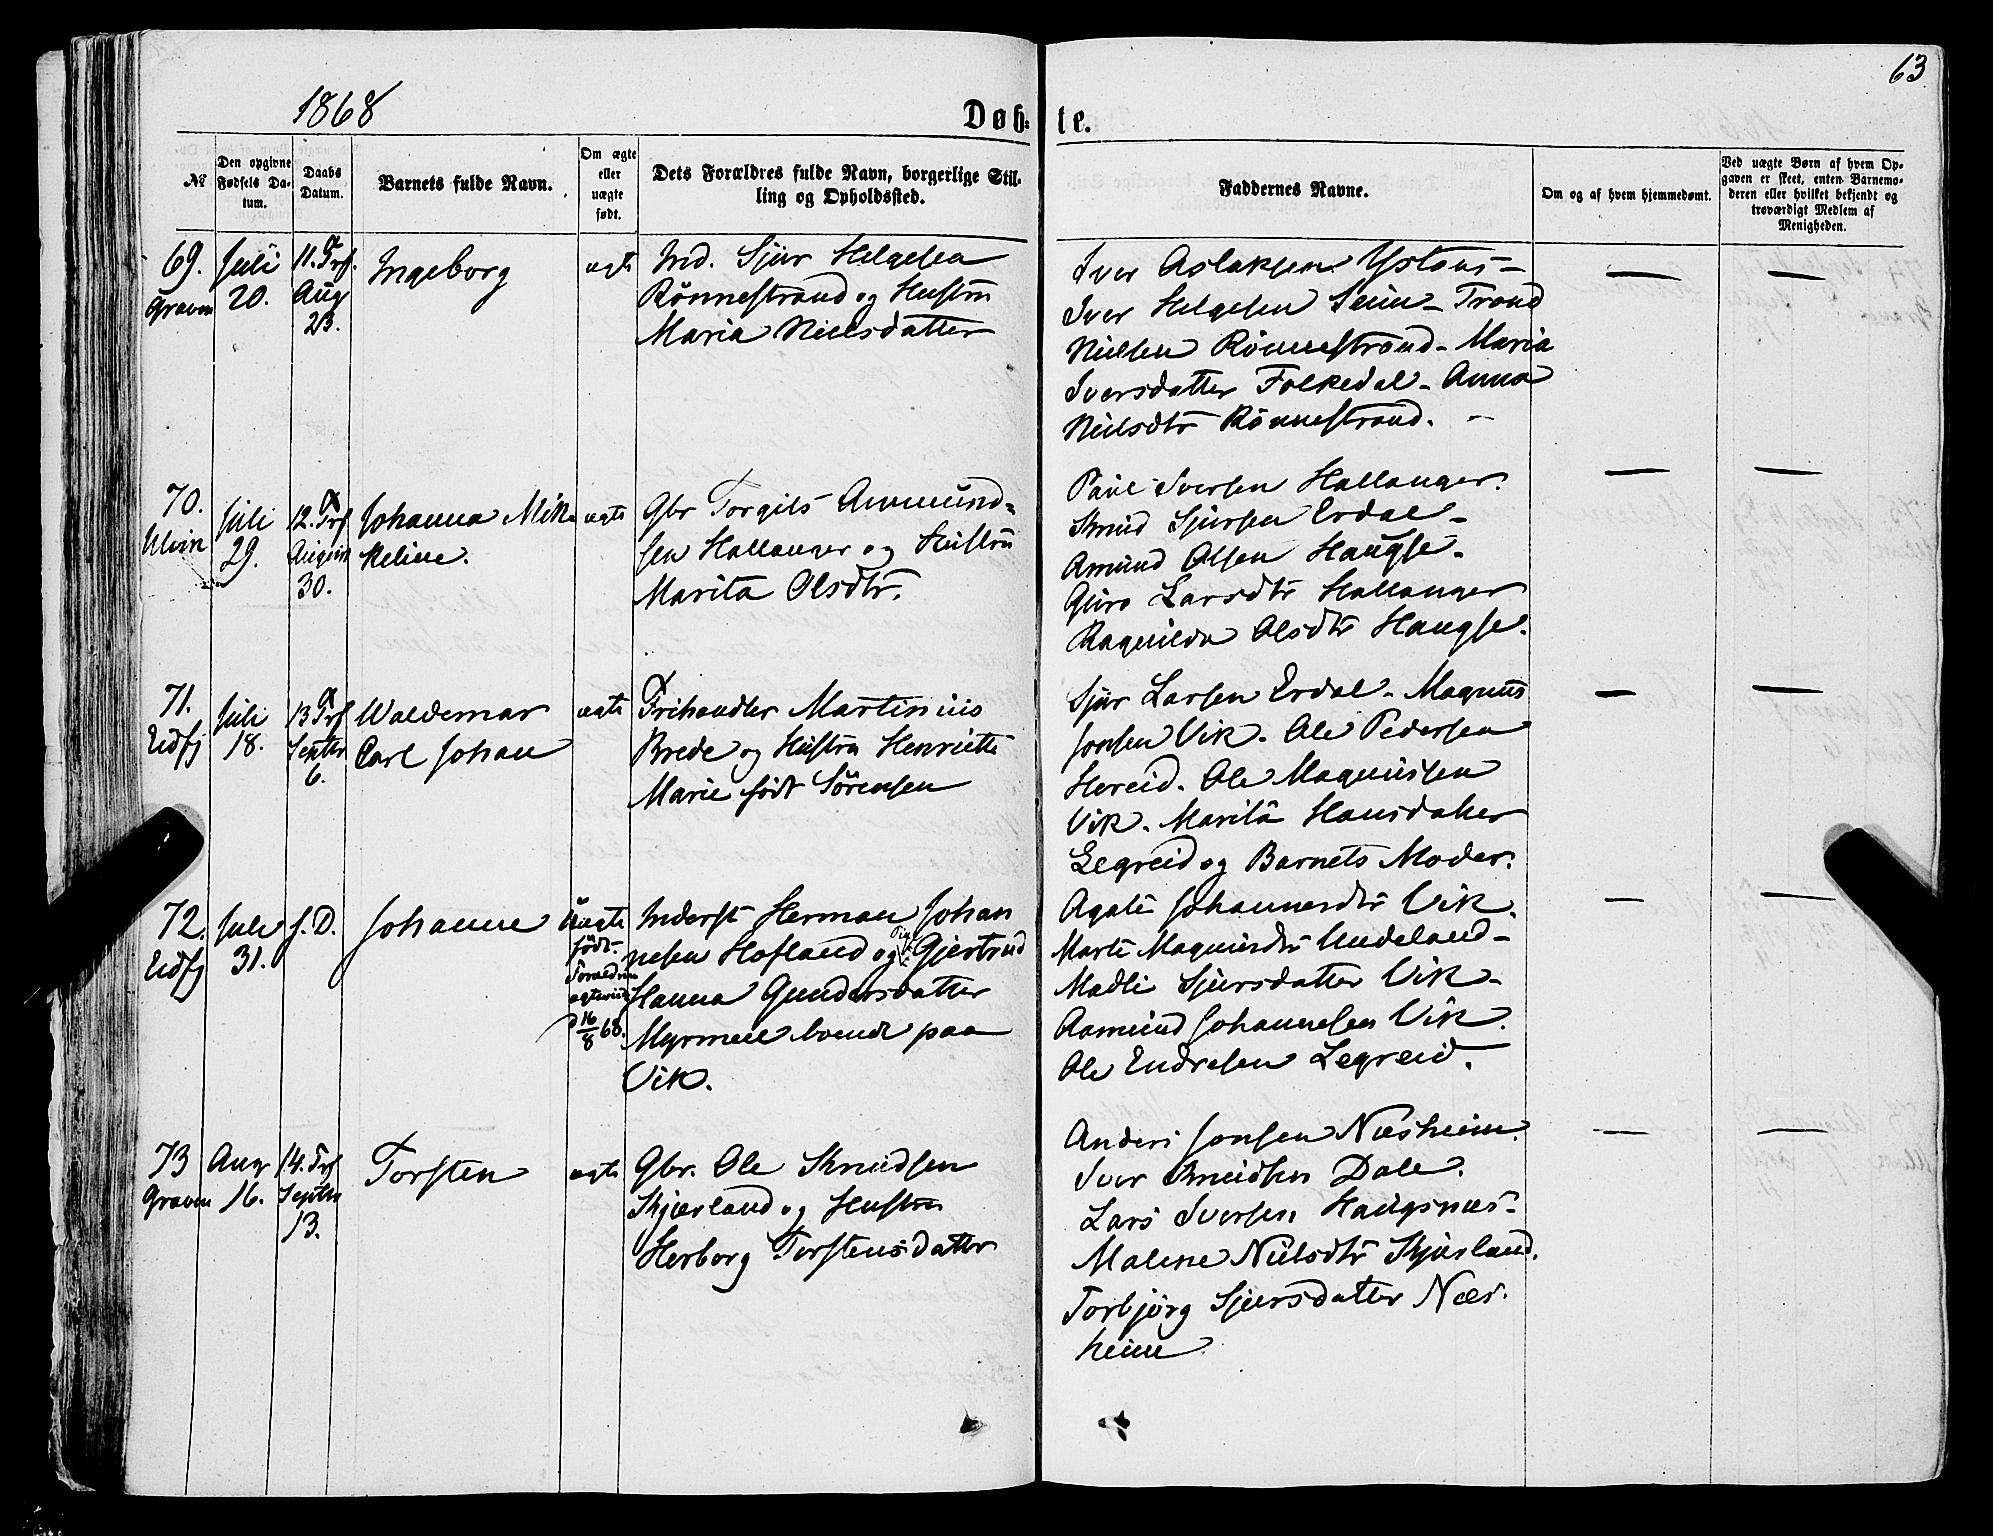 63
1868
Døb-te.
№
Den opgivne Fødsels Datum.
Daabs Datum.
Barnets fulde Navn.
Om ægte eller uægte født.
Dets Forældres fulde Navn, borgerlige Stilling og Opholdssted.
Faddernes Navne.
Om og af hvem hjemmedøbt.
Ved uægte Børn af hvem Opgaven er skeet, enten Barnemoderen eller hvilket bekjendt og troværdigt Medlem af Menigheden.
69. Graven
Juli 20.
11. Trf. Aug 23.
Ingeborg
ægte
Ind. Sjur Helgesen
Rönnestrand og Hustru
Maria Nielsdatter
Iver Aslaksen Ystaas -
Iver Helgesen Seim - Trond
Nielsen Rönnestrand - Maria
Iversdatter Folkedal - Anna
Nielsdtr Rönnestrand. -
—
—
70. Ulvik
Juli 29.
12. Trf August 30.
Johanna Mik-
keline.
ægte
Gbr Torgils Ammund-
sen Hallanger og Hustru
Marita Olsdtr.
Paul Iversen Hallanger.
Knud Sjursen Erdal -
Amund Olsen Haugse -
Guro Larsdtr Hallanger
Ragnilda Olsdtr Haugse.
—
—
71. Eidfj
Juli 18.
13 Trf Septbr 6.
Waldemar
Carl Johan
ægte
Frihandler Martinius
Brede og Hustru Henriette
Marie født Sörensen
Sjur Larsen Erdal - Magnus
Jonsen Vik. Ole Pedersen
Hereid. Ole Magnussen
Vik. Marita Hansdatter
Legreid og Barnets Moder.
—
—
72. Eidfj
Juli 31.
s. D.
Johanne
Uægte
født -
Forældrene
ægteviet
d 16/8 68.
Inderst Herman Johan
nesen Hofland og Pige Gjertrud
Hanna Gundersdatter
Myrmell boende paa
Vik.
Agate Johannesdtr Vik.
Marte Magnusdtr Undeland -
Madli Sjursdatter Vik -
Aamund Johannesen Vik.
Ole Endresen Legreid.
—
—
73 Graven
Aug 16.
14. Trf Septbr 13.
Torsten
ægte
Gbr. Ole Knudsen
Kjærland og Hustru
Herborg Torstensdatter
Anders Jonsen Næsheim.
Iver Knudsen Dale.
Lars Iversen Haugsnæs -
Malene Nielsdtr Kjærland.
Torbjörg Sjursdatter Næs-
heim
—
—